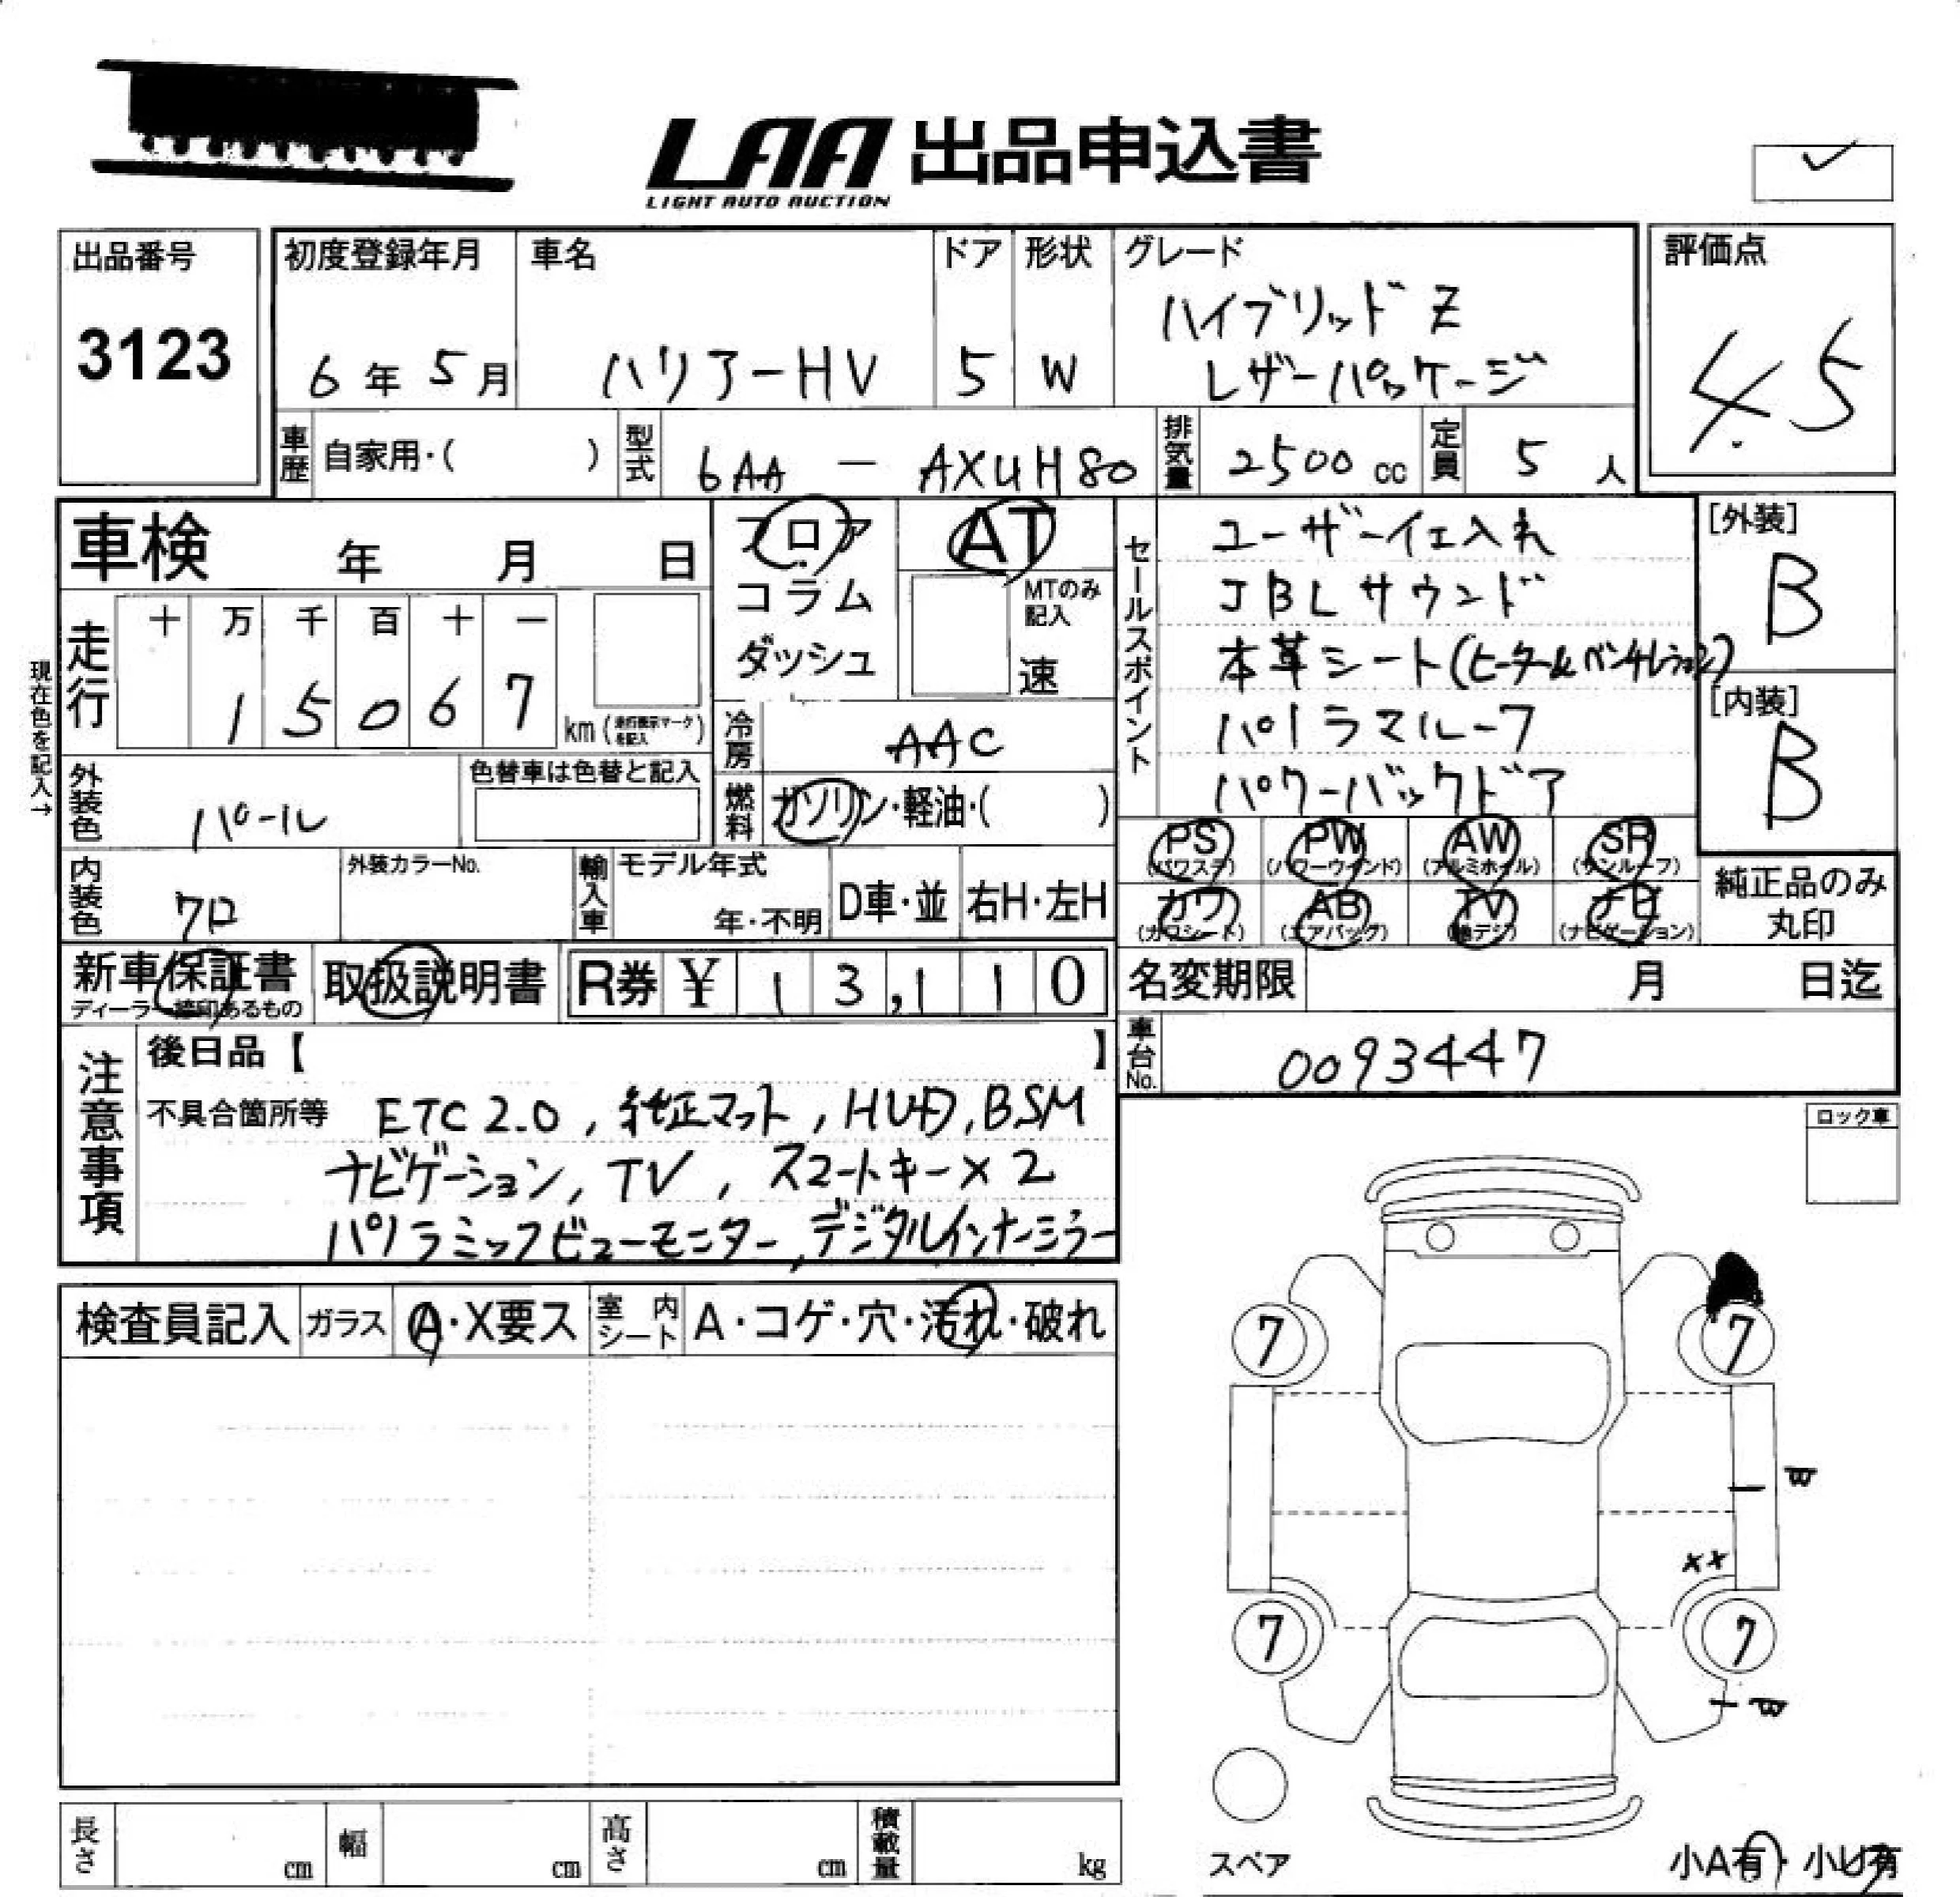 LAA 出品申込書
LIGHT AUTO AUCTION
出品番号
3123
初度登録年月
6年5月
車名
ハリアーHV
ドア
5
形状
W
グレード
ハイブリッドZ
レザーパッケージ
評価点
4.5
車歴
自家用・( )
型式
6AA - AXUH80
排気量
2500 cc
定員
5 人
車検 年 月 日
フロア
コラム
ダッシュ
AT
MTのみ
記入
速
セールスポイント
ユーザー仕入れ
JBLサウンド
本革シート(ヒーター&ベンチレーション)
パノラマルーフ
パワーバックドア
[外装]
B
[内装]
B
現在色を記入→
走行
十 万 千 百 十 一
1 5 0 6 7
km(走行表示マークを記入)
冷房
AAC
燃料
ガソリン・軽油・( )
外装色
パール
色替車は色替と記入
内装色
クロ
外装カラーNo.
輸入車
モデル年式
年・不明
D車・並
右H・左H
PS
(パワステ)
PW
(パワーウインド)
AW
(アルミホイル)
SR
(サンルーフ)
カワ
(カワシート)
AB
(エアバック)
TV
(地デジ)
ナビ
(ナビゲーション)
純正品のみ
丸印
新車保証書
ディーラー捺印あるもの
取扱説明書
R券 ¥ 1 3,1 1 0
名変期限 月 日迄
車台No.
0093447
注意事項
後日品【 】
不具合箇所等 ETC2.0, 純正マット, HUD, BSM
ナビゲーション, TV, スマートキー×2
パノラミックビューモニター, デジタルインナーミラー
ロック車
検査員記入
ガラス
A・X要ス
室内シート
A・コゲ・穴・汚れ・破れ
7
7
B
××
7
7
B
スペア
小A有・小U有
長さ
cm
幅
cm
高さ
cm
積載量
kg